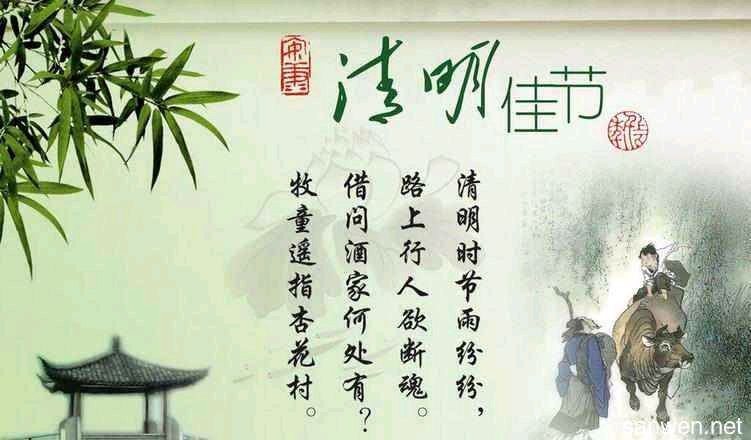 清明佳节
清明时节雨纷纷，
路上行人欲断魂。
借问酒家何处有？
牧童遥指杏花村。
sanwen.net